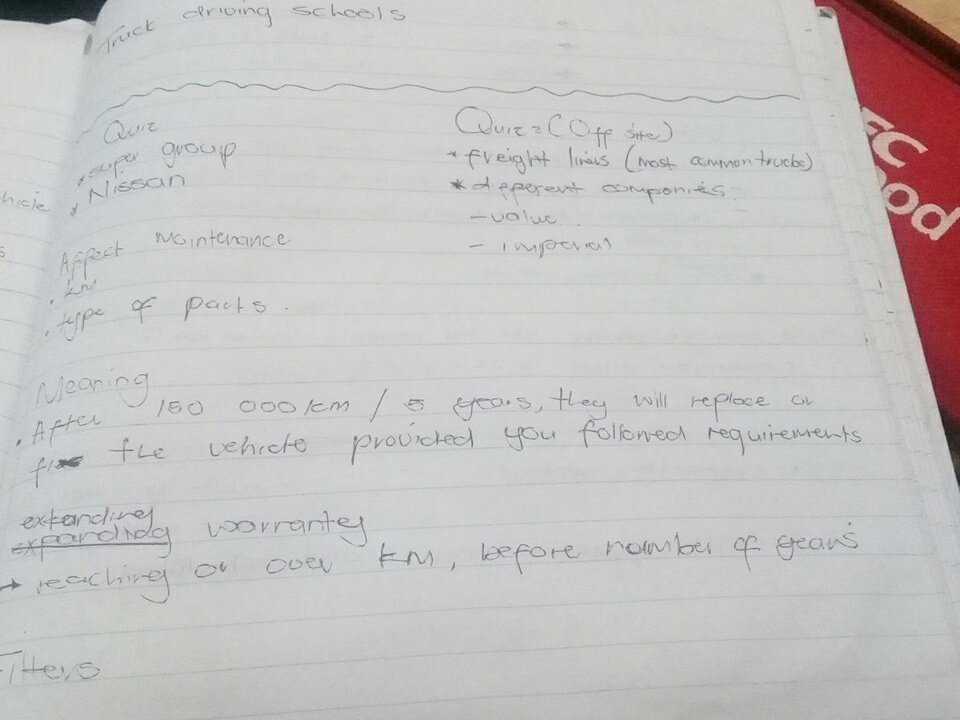 Truck driving schools
Quiz
* super group
* Nissan
Affect Maintenance
. km
. type of parts.
Quiz = (Off site)
* freight lines (most common trucks)
* different companies
- value
- imperial
Meaning
. After 150 000 km / 5 years, they will replace or
fix the vehicle provided you followed requirements
extanding
expanding warrantey
→ reaching or over km, before number of years
Fitters
hicle
s
FC
ood